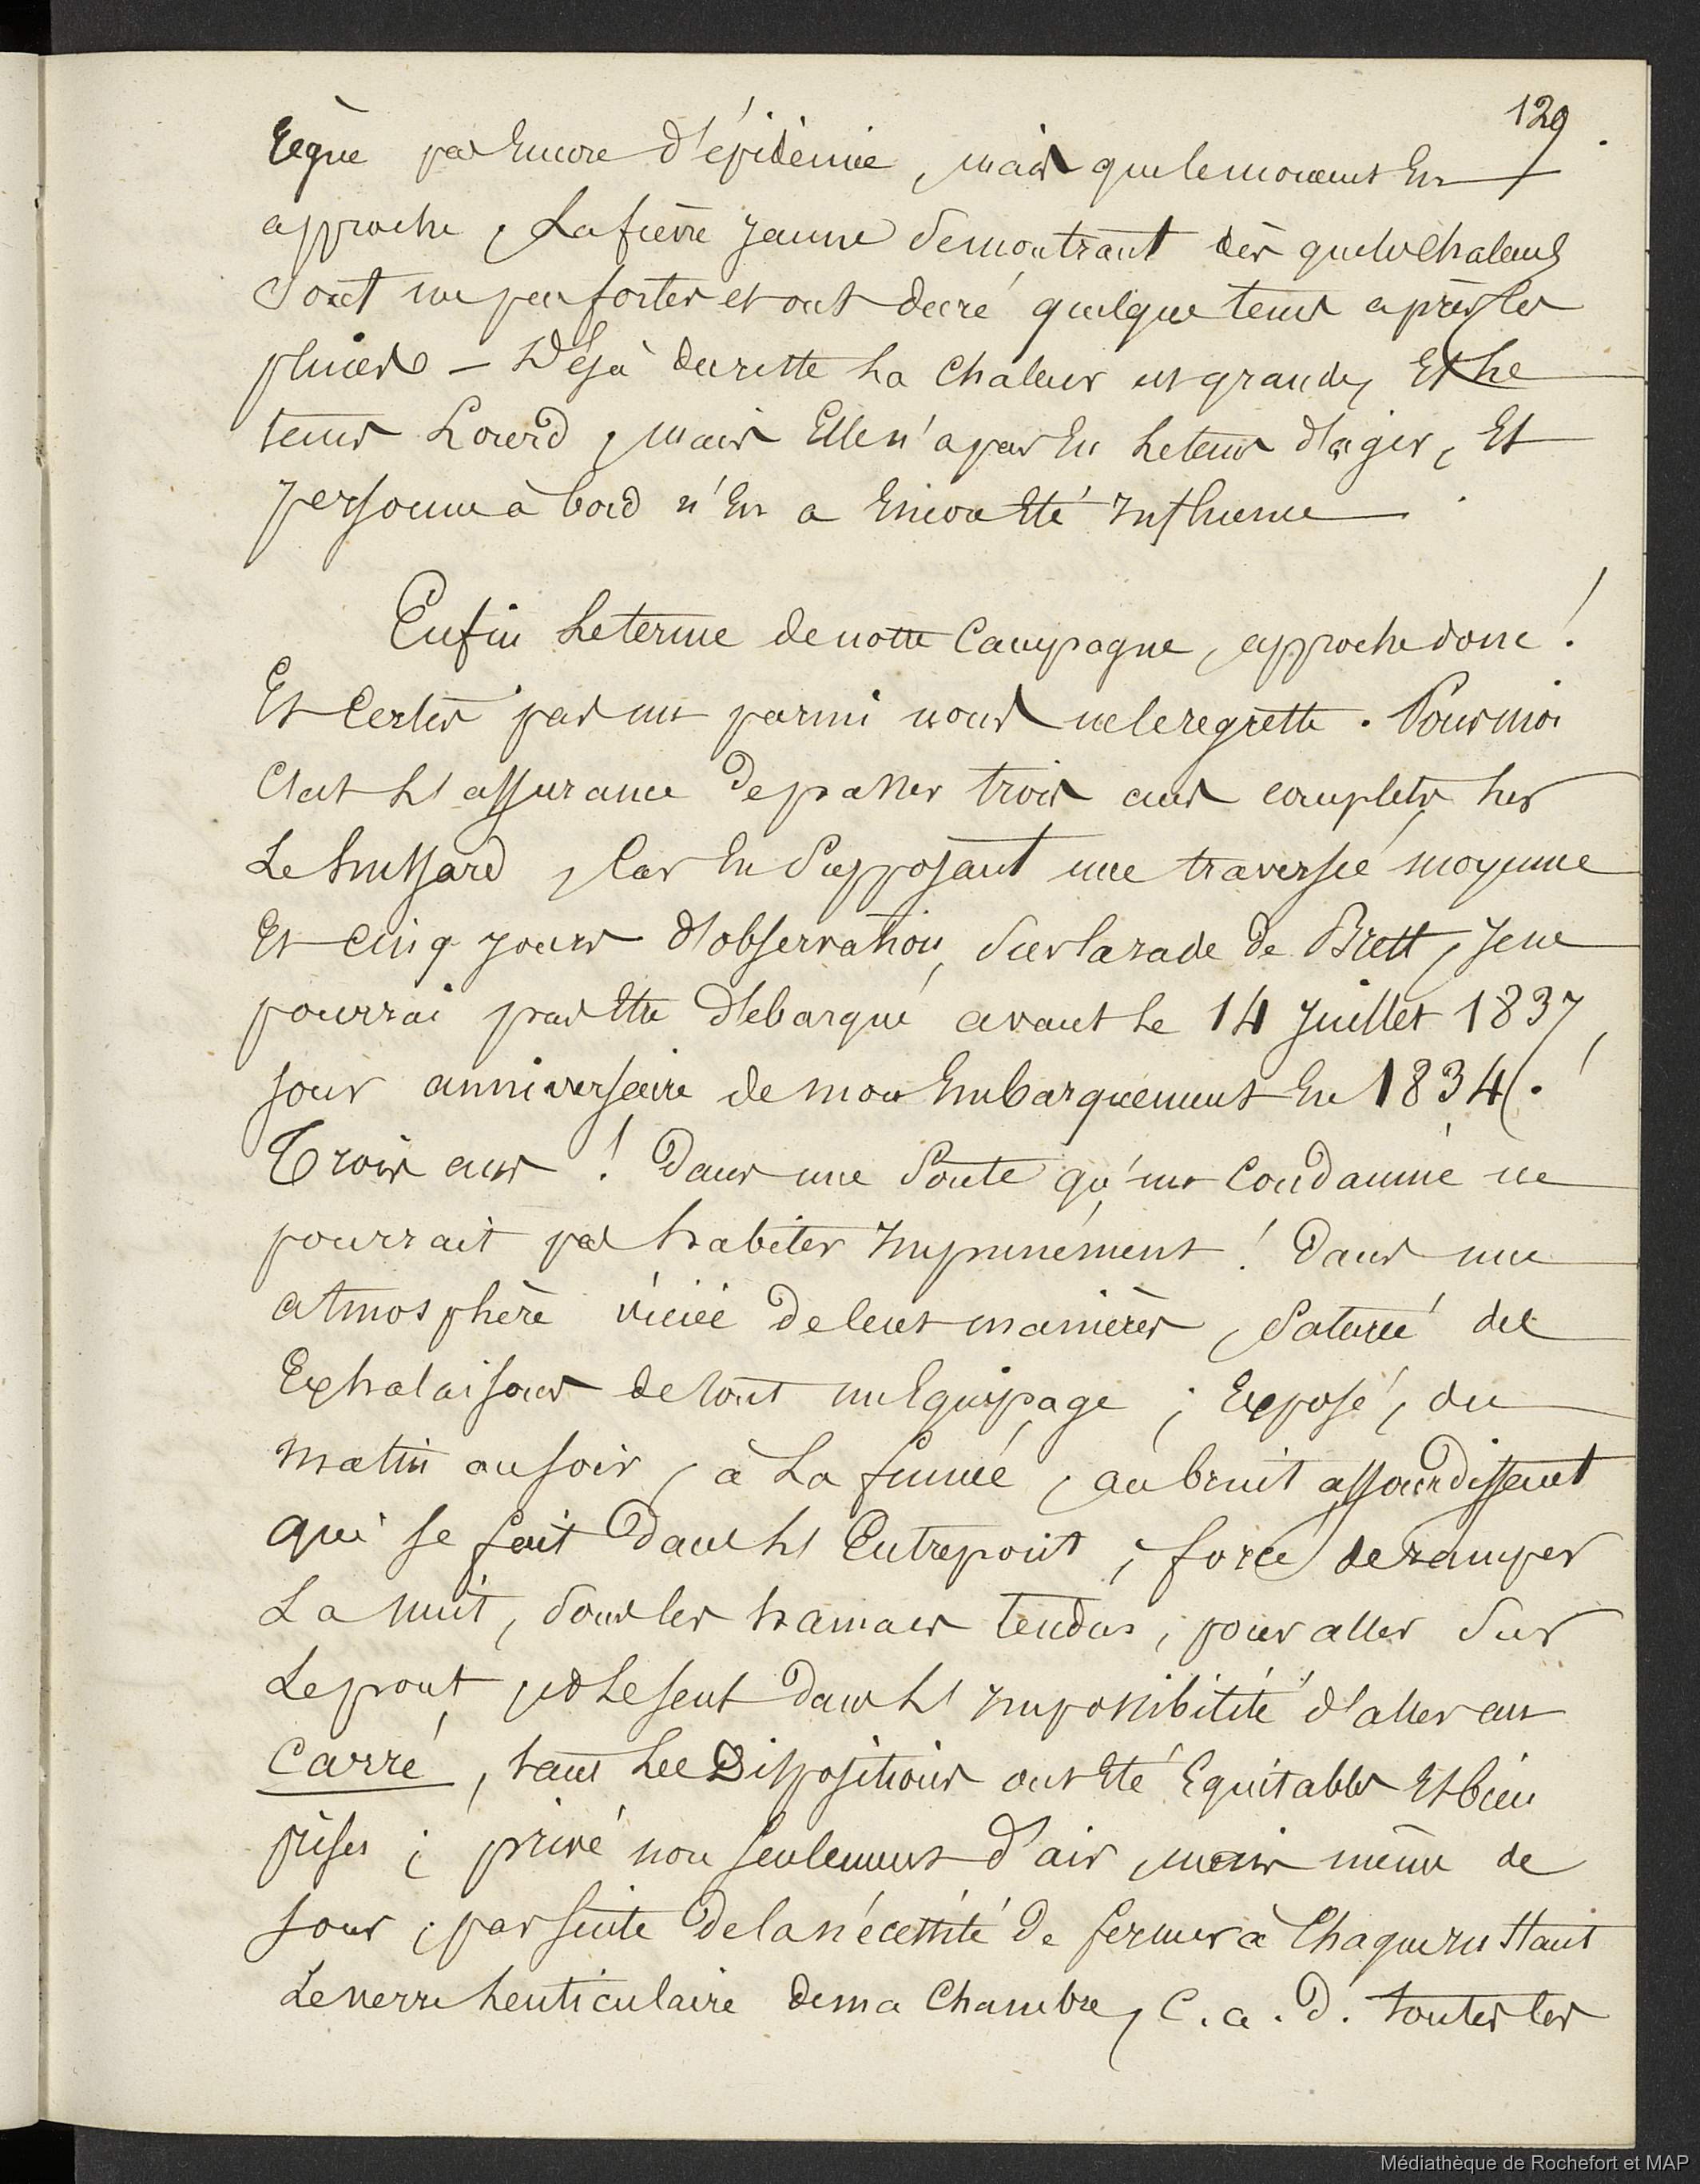 129
règne pas Encore d'épidémie, mais que le moment En
approche, La fièvre jaune se montrant dès que les chaleurs
sont un peu fortes et ont duré quelque tems après les
pluies — Déjà du reste La Chaleur est grande, Et Le
tems Lourd, mais Elle n'a pas Eu Le tems d'agir, Et
personne à bord n'En a Encore Eté Influencé
Enfin Le terme de notre Campagne, approche donc !
Et Certes pas un parmi nous ne le regrette. Pour moi
C'est L'assurance de passer trois ans complets sur
Le hussard, Car En Supposant une traversée moyenne
Et Cinq jours d'observation, Sur la rade de Brest, Je ne
pourrai pas Etre débarqué avant Le 14 Juillet 1837,
jour anniversaire de mon Embarquement En 1834 !
Trois ans ! Dans une Soute qu'un Condamné ne
pourrait pas habiter Impunément ! Dans une
atmosphère viciée de cent manières, Saturée des
Exhalaisons de tout un Equipage ; Exposé, du
matin au soir, à La fumée, au bruit assourdissant
qui se fait Dans L'Entrepont ; forcé de ramper
La nuit, Sous les hamacs tendus, pour aller Sur
Le pont, Dans L'Impossibilité d'aller au
Carré, tant Les Dispositions ont Eté Equitables Et bien
prises ; privé non seulement d'air, mais même de
jour, par suite de la nécessité de fermer à Chaque Instant
Le verre Lenticulaire de ma Chambre, C. a. D. toutes les
Médiathèque de Rochefort et MAP